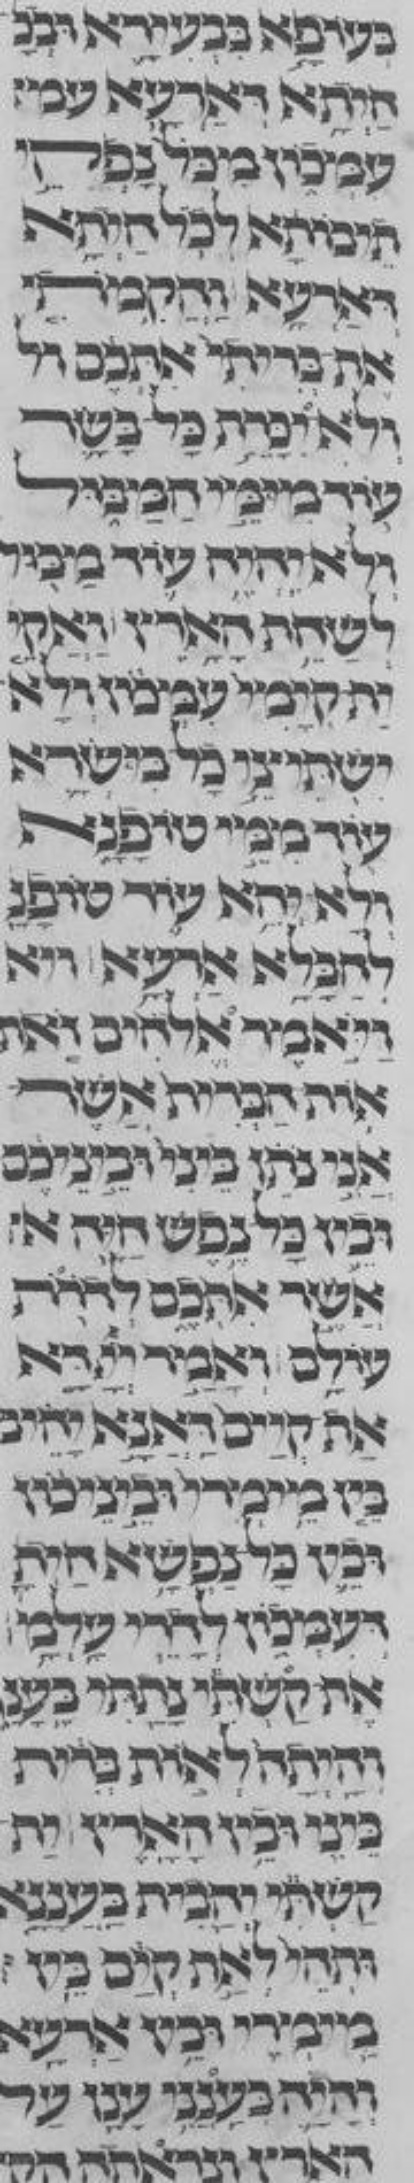 בעופא בבעירא ובכ
חיתא דארעא עמי
עמכון מכל נפקי
תיבותא לכל חיתא
דארעא והקמתי
את בריתי אתכם ול
ולא יכרת כל בשר
עוד מימי המבול
ולא יהיה עוד מבול
לשחת הארץ ואקי
ית קימי עמכון ולא
ישתיצי כל בישרא
עוד ממי טופנא
ולא יהא עוד טופנ
לחבלא ארעא ויא
ויאמר אלהים זאת
אות הברית אשר
אני נתן ביני וביניכם
ובין כל נפש חיה א
אשר אתכם לדרת
עולם ואמר יי דא
את קיים דאנא יהיב
בין מימרי וביניכון
ובין כל נפשא חית
דעמכון לדרי עלמ
את קשתי נתתי בענן
והיתה לאות ברית
ביני ובין הארץ ית
קשתי יהבית בעננא
ותהי לאת קים בין
מימרי ובין ארעא
והיה בענני ענן על
הארץ ונראתה הק